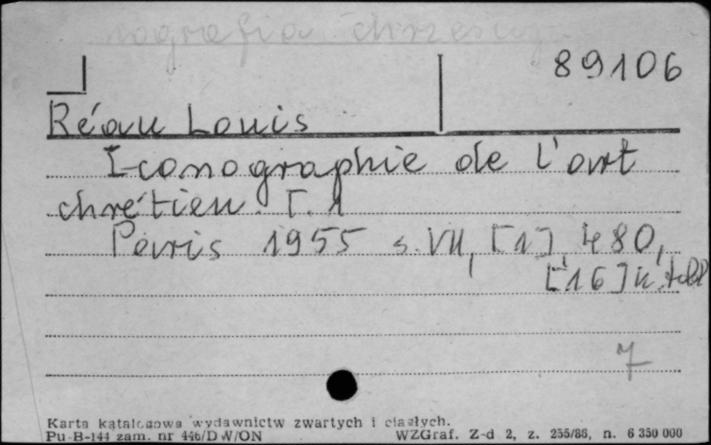 89106
Réau Louis
Iconographie de l'art
chrétien. T. 1
Paris 1955 s. VII, [1], 480,
[16] k. tabl
7
Karta katalogowa wydawnictw zwartych i ciągłych.
Pu-B-144 zam. nr 446/DW/ON WZGraf. Z-d 2, z. 255/86, n. 6 350 000